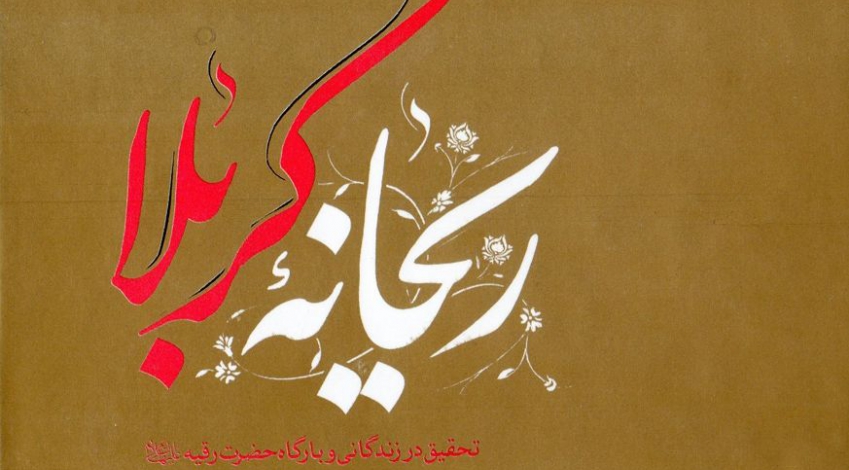 ریحانهٔ
کربلا
تحقیق در زندگانی و بارگاه حضرت رقیه